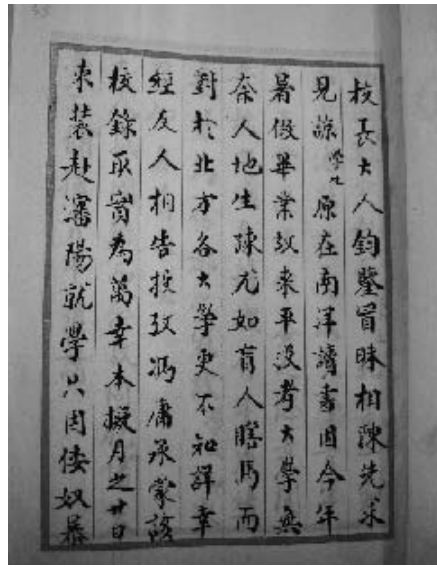 校長大人鈞鑒冒昧相陳先求
見諒學生原在南洋讀書因今年
暑假畢業故來平沒考大學無
奈人地生疎尤如盲人瞎馬而
對於北方各大學更不知詳幸
經友人相告投攷馮庸承蒙該
校錄取實為萬幸本擬月之廿日
束裝赴瀋陽就學只因倭奴暴